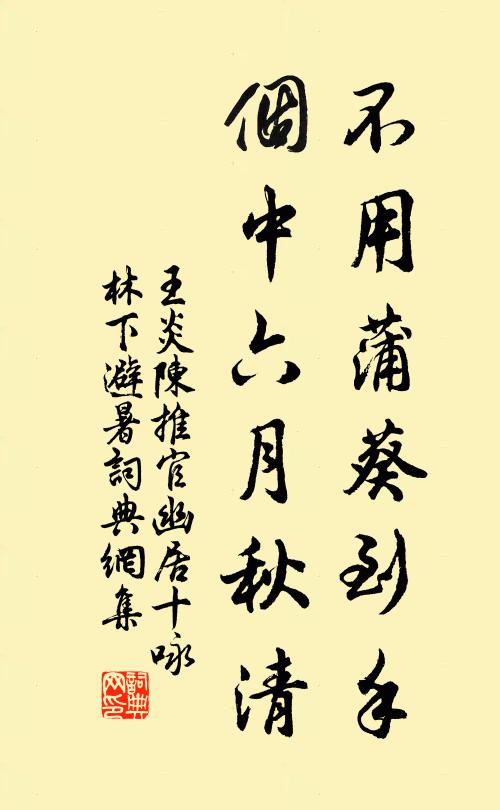 不用蒲葵到手
個中六月秋清
王炎陳推官幽居十咏
林下避暑詞典網集
詞典网印